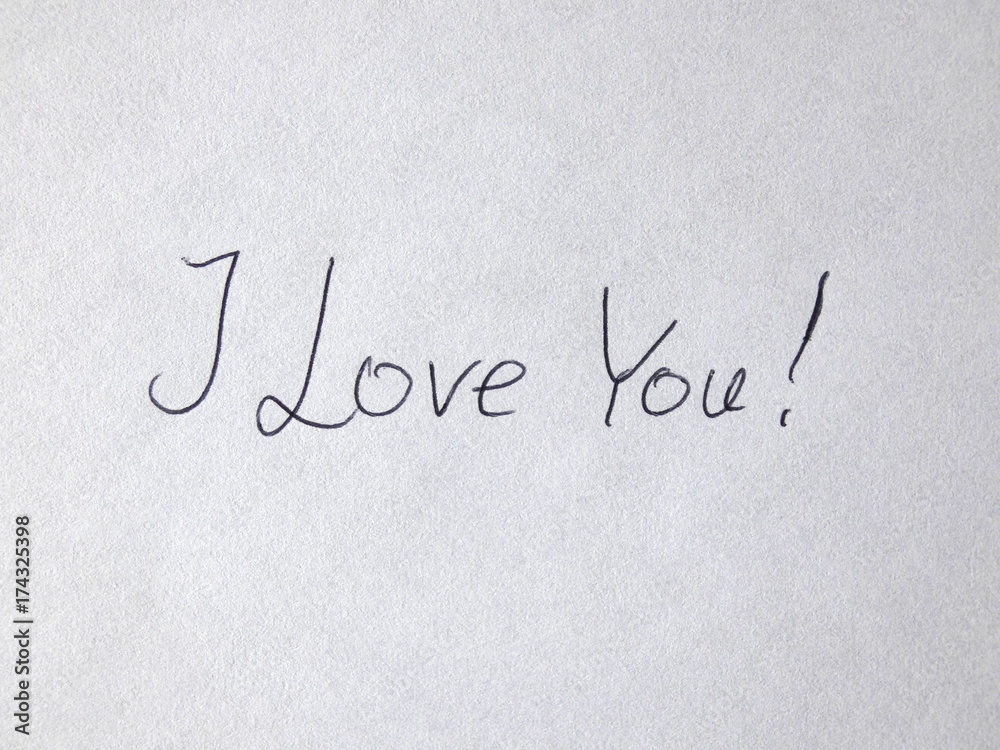 I Love You!
Adobe Stock | #174325398